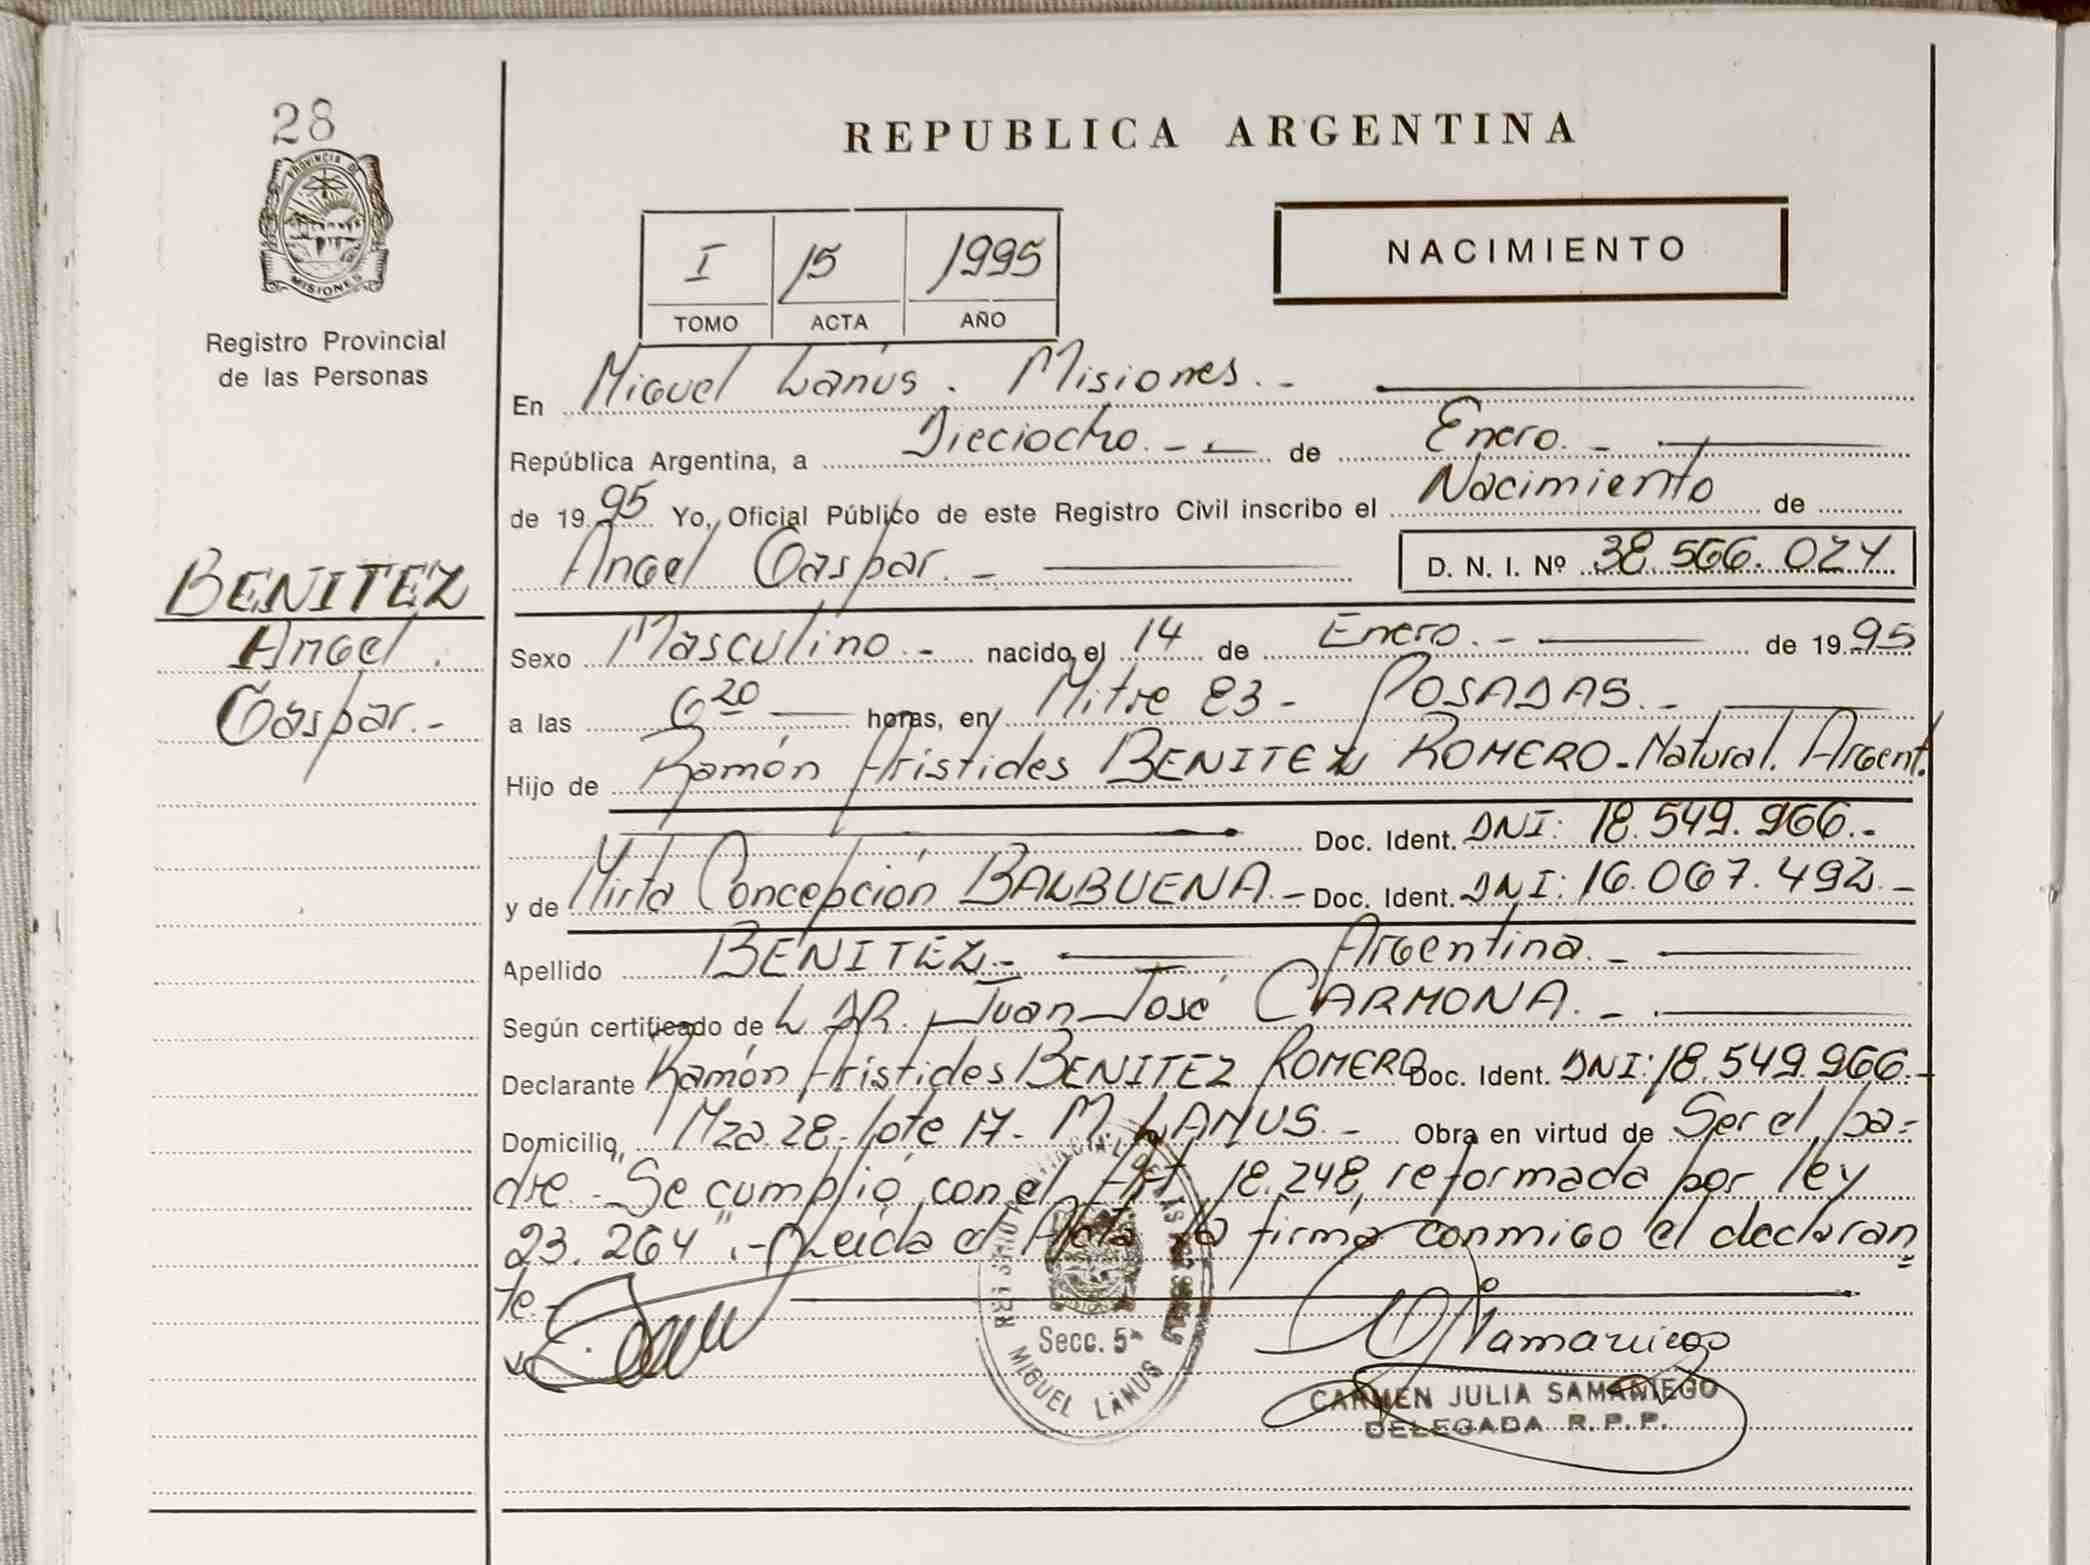 28
PROVINCIA DE
MISIONES
Registro Provincial
de las Personas
BENITEZ
Angel
Gaspar.-
REPUBLICA ARGENTINA
I 15 1995
TOMO ACTA AÑO
NACIMIENTO
En Miguel Lanús. Misiones.-
República Argentina, a Dieciocho.-- de Enero.-
de 1995 Yo, Oficial Público de este Registro Civil inscribo el Nacimiento de
Angel Gaspar.- D. N. I. Nº 38.566.024
Sexo Masculino.- nacido el 14 de Enero.- de 1995
a las 6 20 horas, en Mitre 83- POSADAS.-
Hijo de Ramón Arístides BENITEZ ROMERO-Natural. Argent.
Doc. Ident. DNI: 18.549.966.-
y de Mirta Concepción BALBUENA.- Doc. Ident. DNI: 16.067.492.-
Apellido BENITEZ.- Argentina.-
Según certificado de L DR. Juan José CARMONA.-
Declarante Ramón Arístides BENITEZ ROMERO Doc. Ident. DNI: 18.549.966.-
Domicilio Mza 28-lote 17- M. LANUS.- Obra en virtud de Ser el pa-
dre.- "Se cumplió con el Art 18.248, reformada por ley
23.264".- Leída el Acta la firma conmigo el declaran
te.-
Secc. 5ª
MIGUEL LANUS
CARMEN JULIA SAMANIEGO
DELEGADA R.P.P.